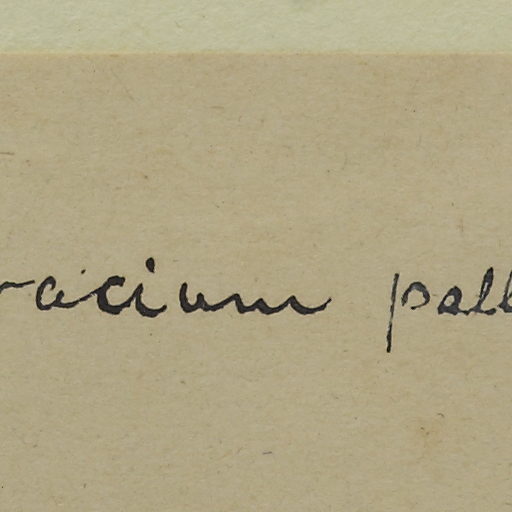 racium pall